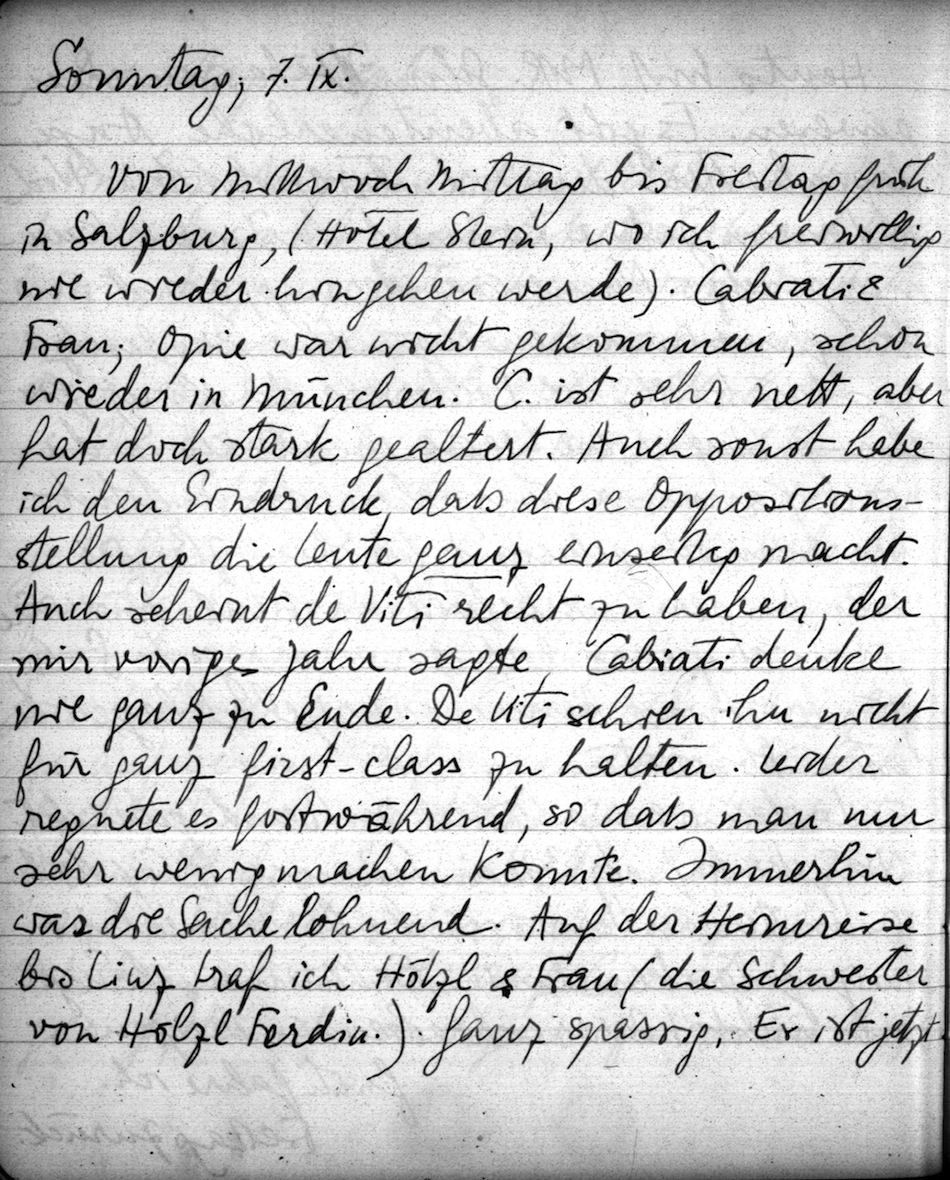 Sonntag, 7. IX.
Von Mittwoch Mittag bis Freitag früh
in Salzburg, (Hotel Stein, wo ich freiwillig
nie wieder hingehen werde). Cabiati &
Frau; Opie war nicht gekommen, schon
wieder in München. C. ist sehr nett, aber
hat doch stark gealtert. Auch sonst habe
ich den Eindruck, dass diese Oppositions-
stellung die Leute ganz einseitig macht.
Auch scheint de Viti recht zu haben, der
mir voriges Jahr sagte, Cabiati denke
nie ganz zu Ende. De Viti schien ihn nicht
für ganz first-class zu halten. Leider
regnete es fortwährend, so dass man nur
sehr wenig machen konnte. Immerhin
war die Sache lohnend. Auf der Heimreise
bis Linz traf ich Hölzl & Frau (die Schwester
von Hölzl Ferdin.). Ganz spassig. Er ist jetzt